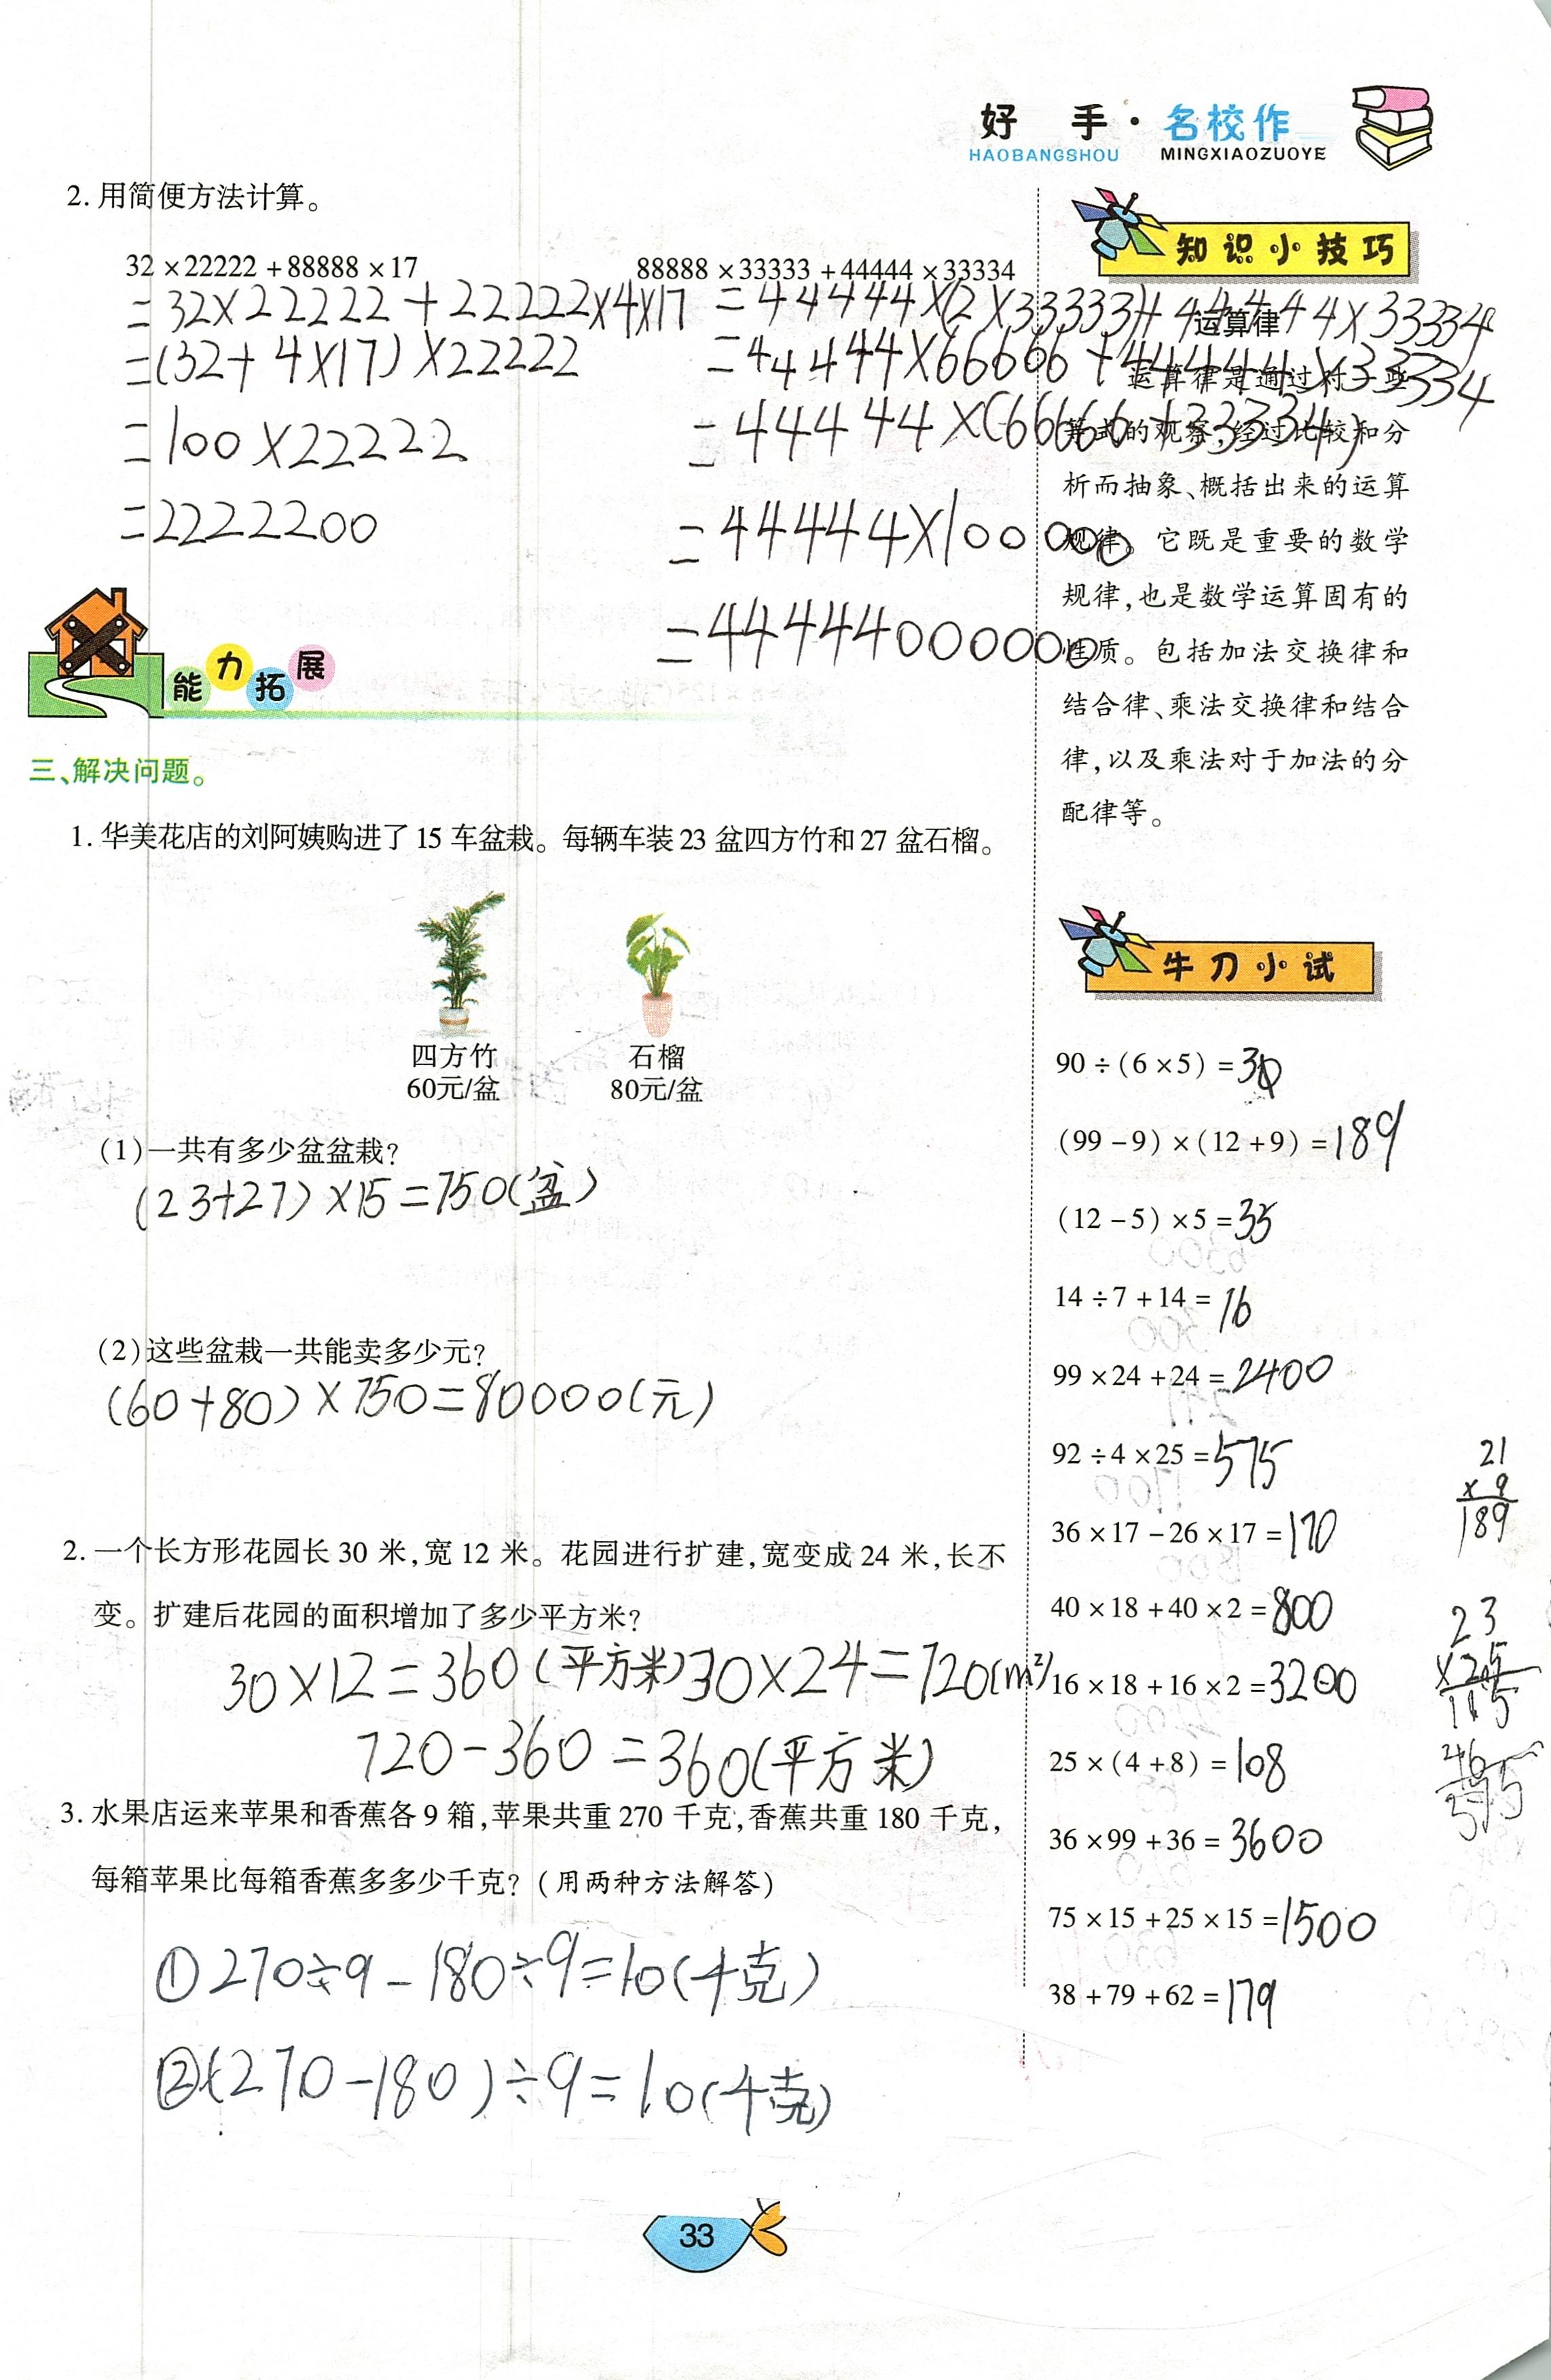 好 手·名校作
HAOBANGSHOU MINGXIAOZUOYE
2. 用简便方法计算。
32×22222+88888×17
=32×22222+22222×4×17
=(32+4×17)×22222
=100×22222
=2222200
88888×33333+44444×33334
=44444×(2×33333)+44444×33334
=44444×66666+44444×33334
=44444×(66666+33334)
=44444×100000
=4444400000
能力拓展
三、解决问题。
1. 华美花店的刘阿姨购进了15车盆栽。每辆车装23盆四方竹和27盆石榴。
四方竹 石榴
60元/盆 80元/盆
(1)一共有多少盆盆栽?
(23+27)×15=750(盆)
(2)这些盆栽一共能卖多少元?
(60+80)×750=80000(元)
2. 一个长方形花园长30米,宽12米。花园进行扩建,宽变成24米,长不
变。扩建后花园的面积增加了多少平方米?
30×12=360(平方米)30×24=720(m²)
720-360=360(平方米)
3. 水果店运来苹果和香蕉各9箱,苹果共重270千克,香蕉共重180千克,
每箱苹果比每箱香蕉多多少千克?(用两种方法解答)
①270÷9-180÷9=10(千克)
②(270-180)÷9=10(千克)
知识小技巧
运算律
运算律是通过对一些
算式的观察,经过比较和分
析而抽象、概括出来的运算
规律。它既是重要的数学
规律,也是数学运算固有的
性质。包括加法交换律和
结合律、乘法交换律和结合
律,以及乘法对于加法的分
配律等。
牛刀小试
90÷(6×5)=30
(99-9)×(12+9)=189
(12-5)×5=35
14÷7+14=16
99×24+24=2400
92÷4×25=575
36×17-26×17=170
40×18+40×2=800
16×18+16×2=3200
25×(4+8)=108
36×99+36=3600
75×15+25×15=1500
38+79+62=179
21
×9
189
23
×25
115
46
575
33